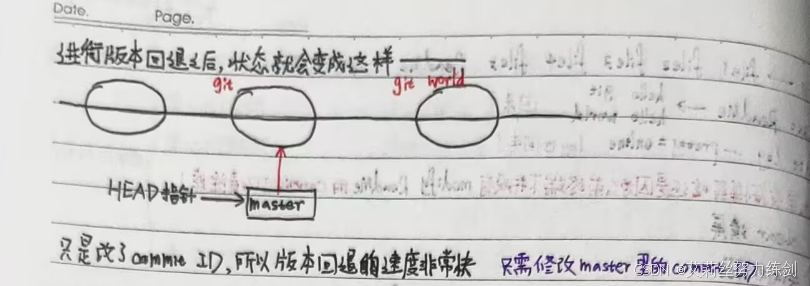 Date. Page.
进行版本回退之后,状态就会变成这样
git git world
HEAD指针 master
只是改了commit ID,所以版本回退的速度非常快 只需修改master里的commit
CSDN @艾莉丝努力练剑